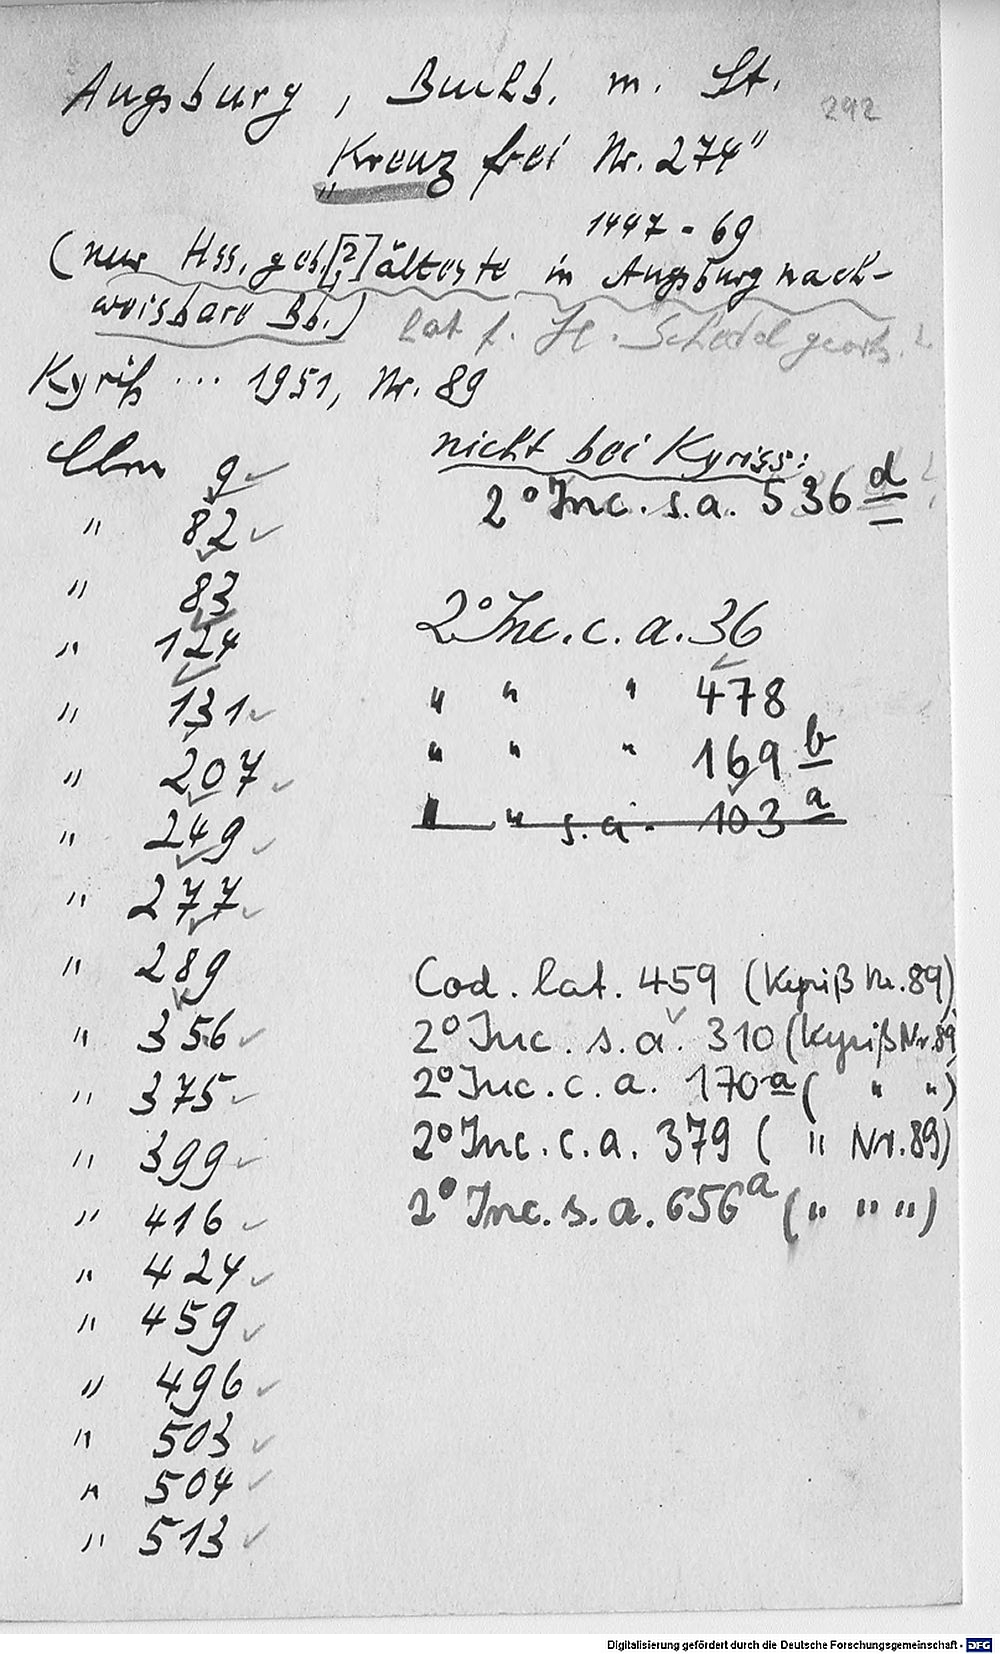 Augsburg, Buchb. m. St. 292
„Kreuz frei Nr. 274"
1447-69
(nur Hss. geb.[?] älteste in Augsburg nach-
weisbare Bb.) hat f. H. Schedel gearb.
Kyriß ... 1951, Nr. 89
Clm 9
" 82
" 83
" 124
" 131
" 207
" 249
" 277
" 289
" 356
" 375
" 399
" 416
" 424
" 459
" 496
" 503
" 504
" 513
nicht bei Kyriss:
2° Inc. s.a. 536 d
2° Inc. c. a. 36
" " " 478
" " " 169 b
" " s.a. 103 a
Cod. lat. 459 (Kyriß Nr. 89)
2° Inc. s. a. 310 (Kyriß Nr. 89)
2° Inc. c. a. 170 a ( " " )
2° Inc. c. a. 379 ( " Nr. 89)
2° Inc. s. a. 656 a ( " " " )
Digitalisierung gefördert durch die Deutsche Forschungsgemeinschaft - DFG